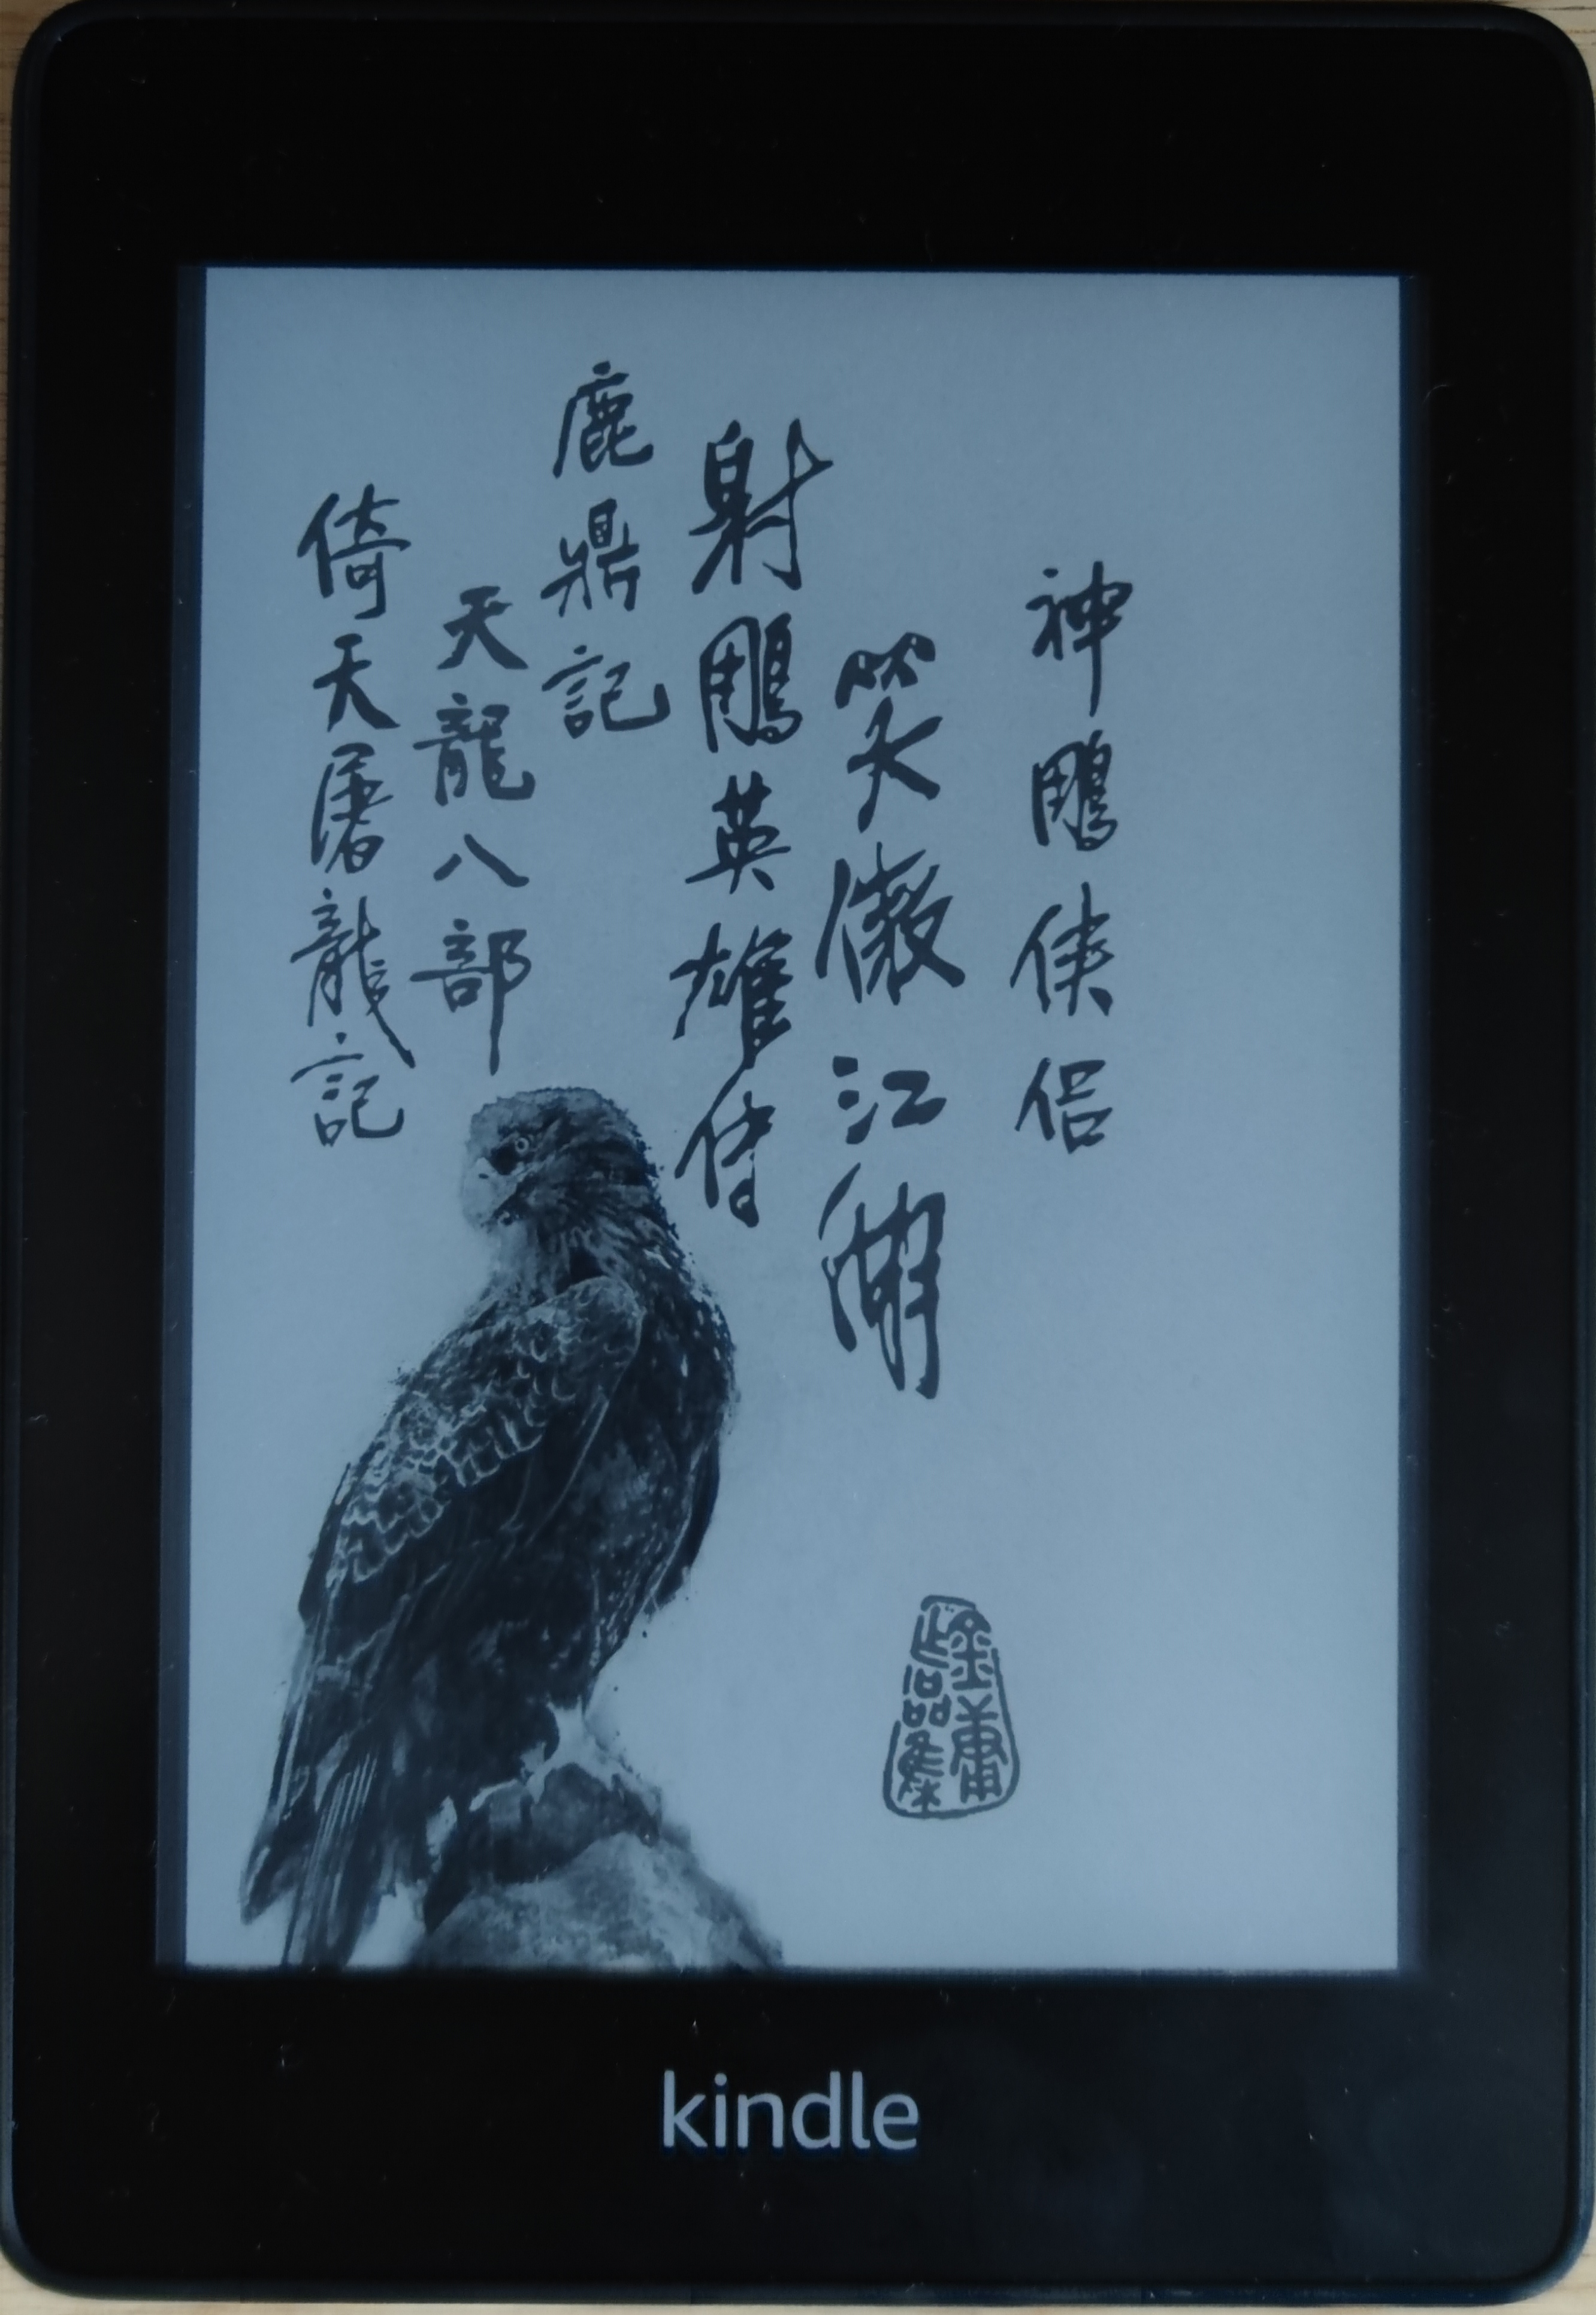 神鵰俠侶
笑傲江湖
射鵰英雄傳
鹿鼎記
天龍八部
倚天屠龍記
金庸
作品集
kindle